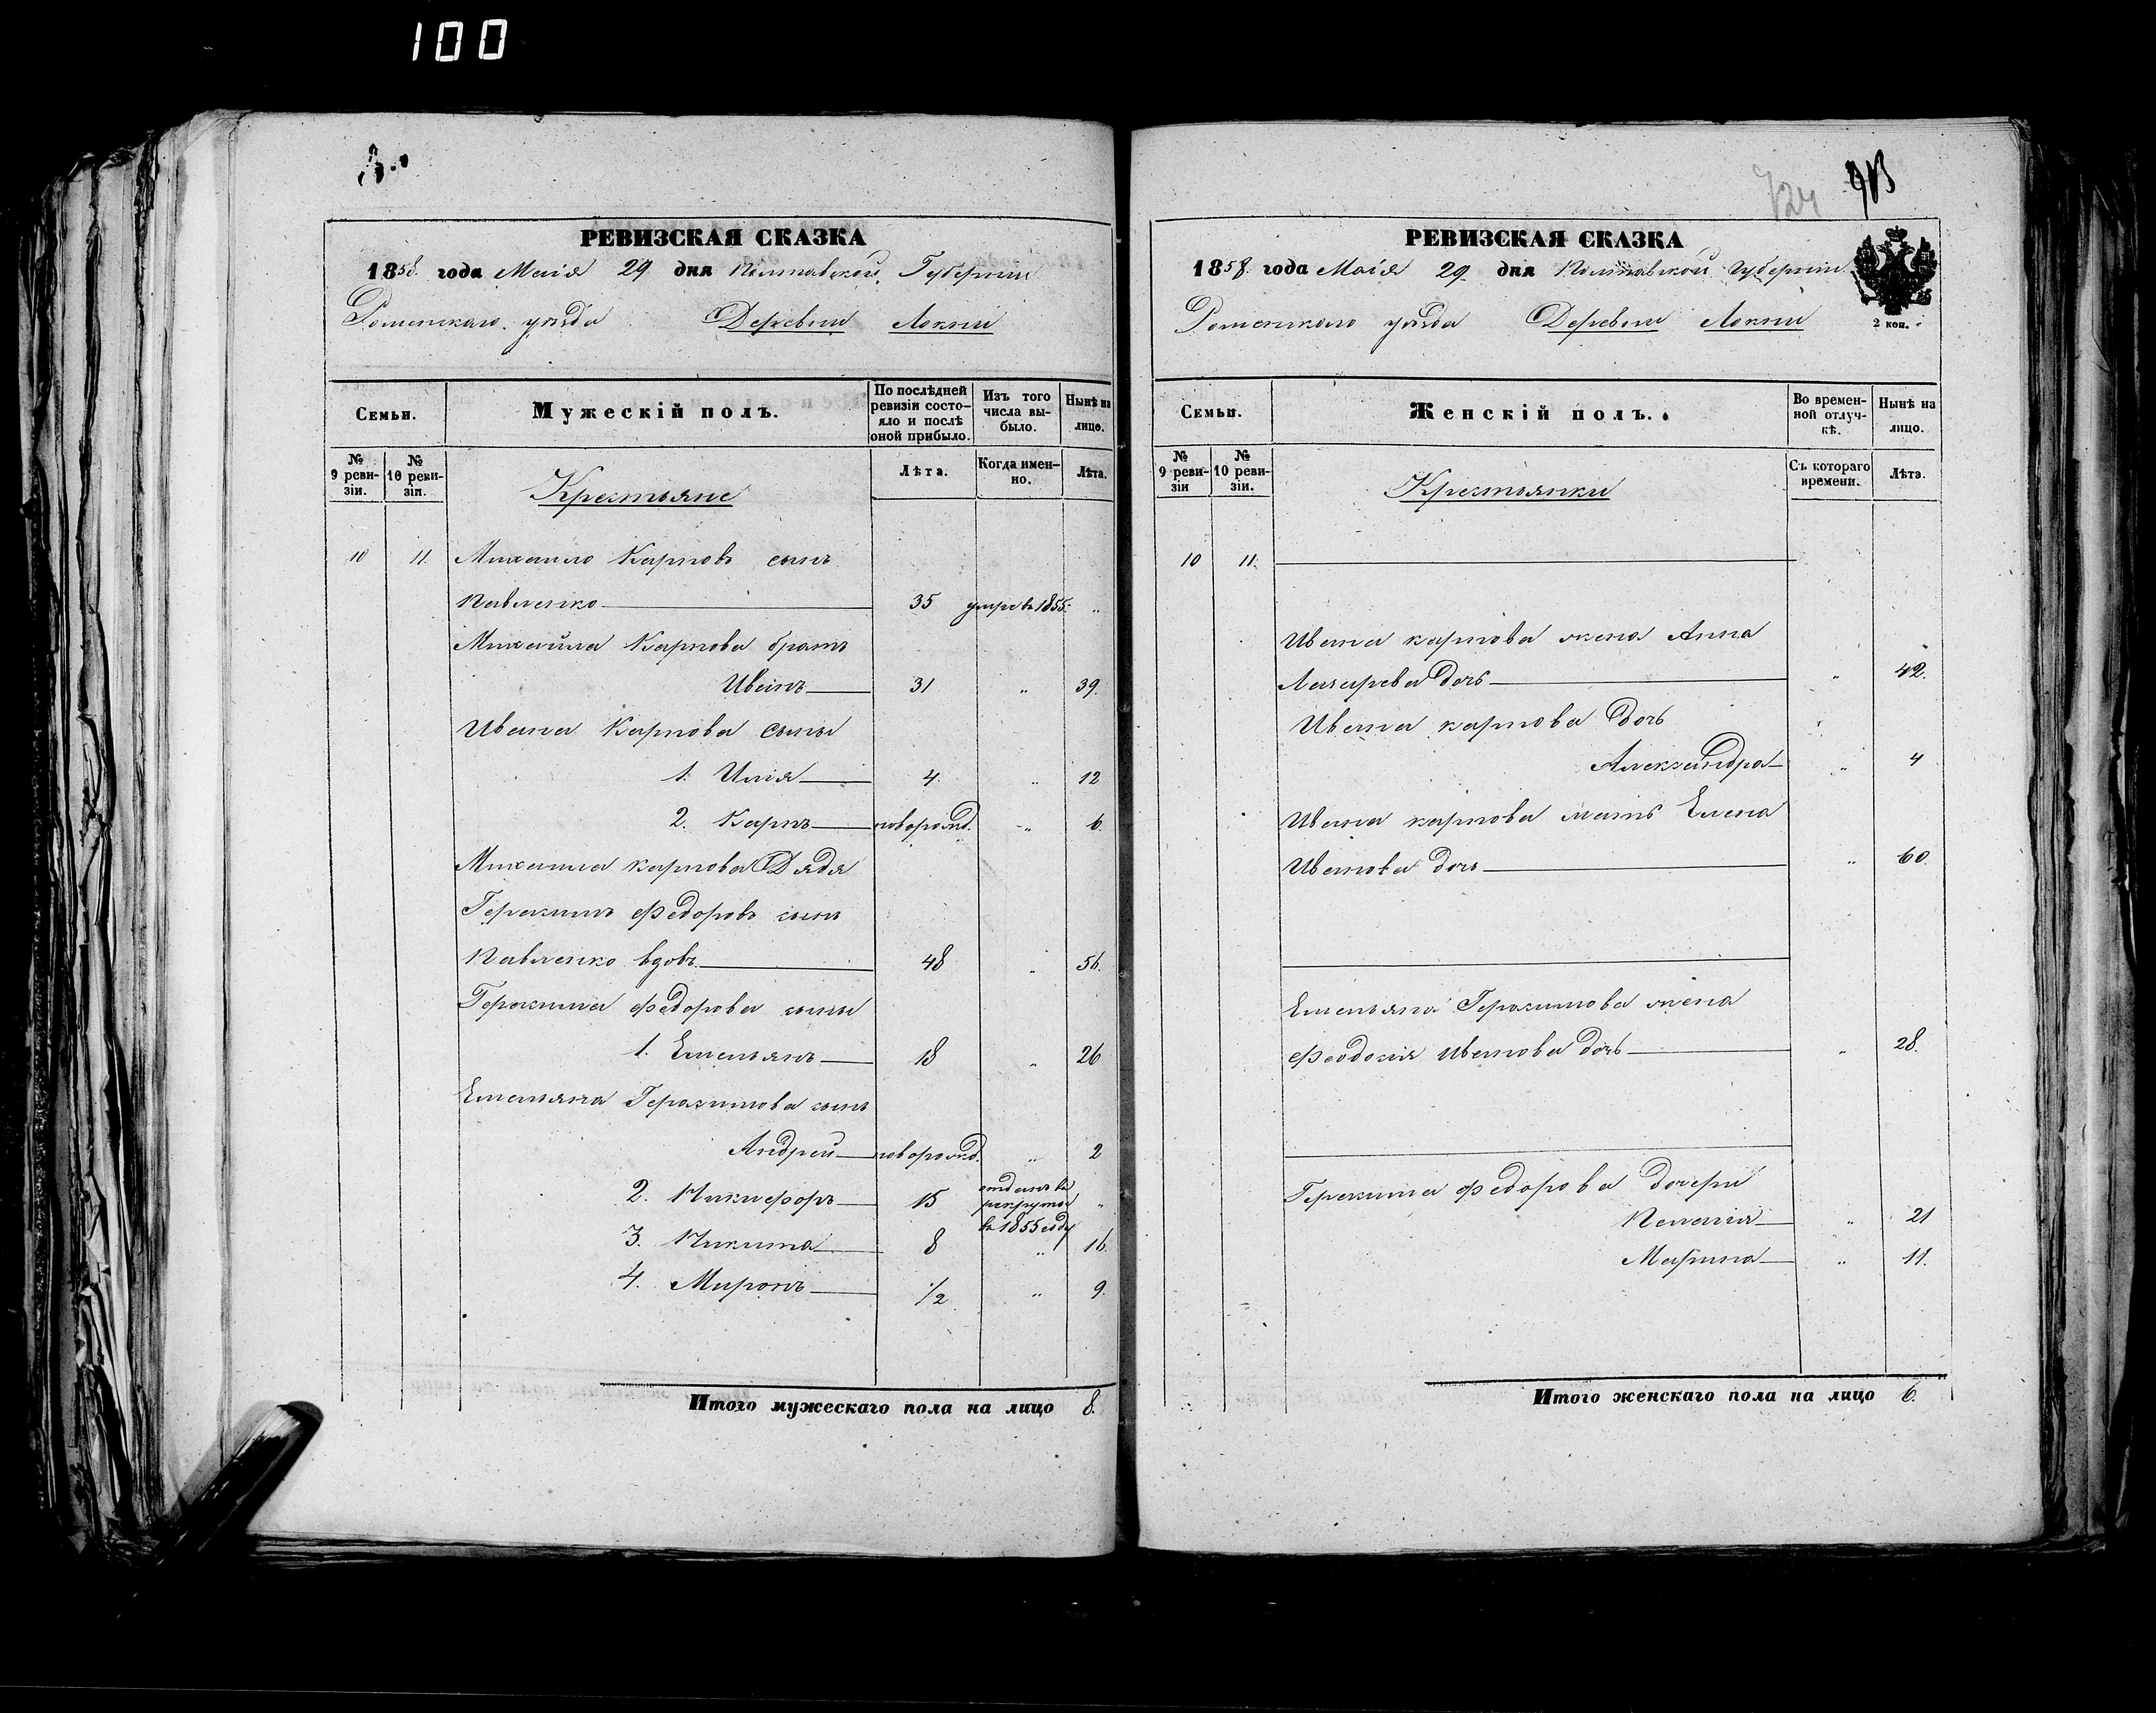 100
РЕВИЗСКАЯ СКАЗКА
1858. года Маія 29 дня Полтавской Губерніи
Роменскаго уѣзда Деревни Локни
Семьи.
Мужескій полъ.
По послѣдней ревизіи состояло и послѣ оной прибыло.
Изъ того числа выбыло.
Нынѣ на лицо.
№ 9 ревизіи.
№ 10 ревизіи.
Крестьяне
Лѣта.
Когда именно.
Лѣта.
10 11. Михайло Карповъ сынъ
Павленко 35 умре въ 1855 „
Михайла Карпова братъ
Иванъ 31 „ 39.
Ивана Карпова сыны
1. Илія 4. „ 12
2. Карпъ новорожд. „ 6.
Михаила карпова Дядя
Герасимъ Федоровъ сынъ
Павленко вдовъ 48 „ 56.
Герасима Федорова сыны
1. Емельянъ 18 „ 26
Емельяна Герасимова сынъ
Андрей новорожд. „ 2
2. Никифоръ 15 отданъ въ рекруты въ 1855 году „
3. Никита 8 „ 16.
4. Миронъ 1/2 „ 9.
Итого мужескаго пола на лицо 8.
724
РЕВИЗСКАЯ СКАЗКА
1858. года Маія 29 дня Полтавской Губерніи
Роменскаго уѣзда Деревни Локни
2 коп.
Семьи.
Женскій полъ.
Во временной отлучкѣ.
Нынѣ на лицо.
№ 9 ревизіи
№ 10 ревизіи.
Крестьянки
Съ котораго времени.
Лѣта.
10 11.
Ивана карпова жена Анна
Лазарева дочь „ 42.
Ивана карпова дочь
Александра „ 4
Ивана карпова мать Елена
Иванова дочь „ 60.
Емельяна Герасимова жена
Феодосія Иванова дочь „ 28.
Герасима Федорова дочери
Пелагія „ 21
Марина „ 11.
Итого женскаго пола на лицо 6.